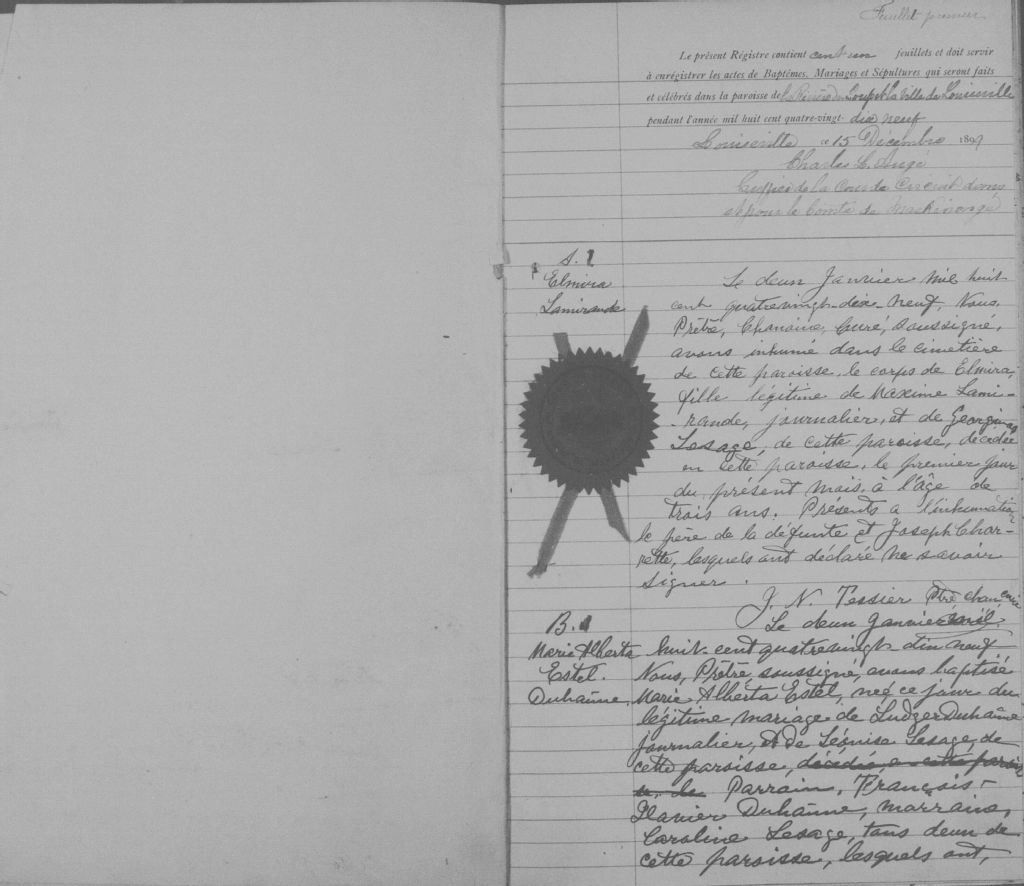 Feuillet premier
Le présent Régistre contient cent un feuillets et doit servir
à enrégistrer les actes de Baptêmes, Mariages et Sépultures qui seront faits
et célébrés dans la paroisse de la Rivière du Loup et la Ville de Louiseville
pendant l'année mil huit cent quatre-vingt- dix neuf
Louiseville ce 15 Décembre 189
Charles L. Augé
de la Cour de Circuit dans
et pour le Comté de
S. 1
Elmira
Lamirande
Le deux Janvier mil huit
cent quatrevingt-dix-neuf, Nous,
Prêtre, Chanoine, Curé, soussigné,
avons inhumé dans le cimetière
de cette paroisse, le corps de Elmira,
fille légitime de Maxime Lami-
rande, journalier, et de Georgina
Lesage, de cette paroisse, décédée
en cette paroisse, le premier jour
du présent mois, à l'âge de
trois ans. Présents à l'inhumation
le père de la défunte et Joseph Char-
rette, lesquels ont déclaré ne savoir
signer.
J. N. Tessier Ptre chanoine
B. 1
Marie Alberta
Estel.
Duhaime
Le deux Janvier mil
huit-cent quatrevingt-dix neuf
Nous, Prêtre, soussigné, avons baptisé
Marie Alberta Estel, née ce jour du
légitime mariage de Ludger Duhaime
journalier, et de Léonise Lesage, de
cette paroisse, décédée, en cette parois
se, le Parrain, François-
Duhaime, marraine,
Caroline Lesage, tous deux de
cette paroisse, lesquels ont,